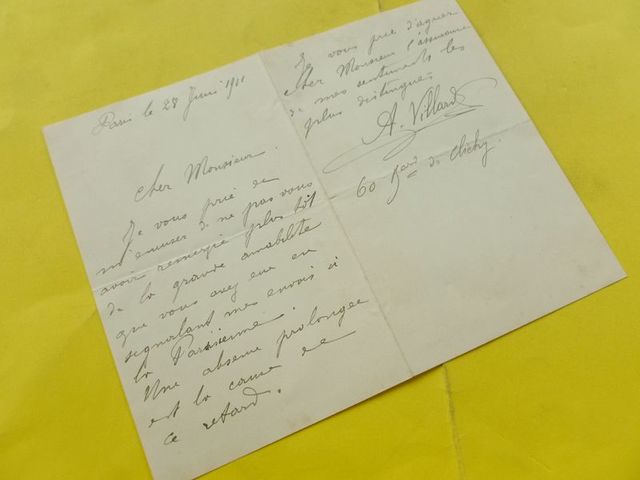 Paris le 28 Juin 1911
Cher Monsieur.
Je vous prie de
m'excuser de ne pas vous
avoir remercié plus tôt
de la grande amabilité
que vous avez eue en
signalant mes envois à
la Parisienne.
Une absence prolongée
est la cause de
ce retard.
Je vous prie d'agréer
cher Monsieur l'assurance
de mes sentiments les
plus distingués
A. Villard
60 Bard de Clichy.